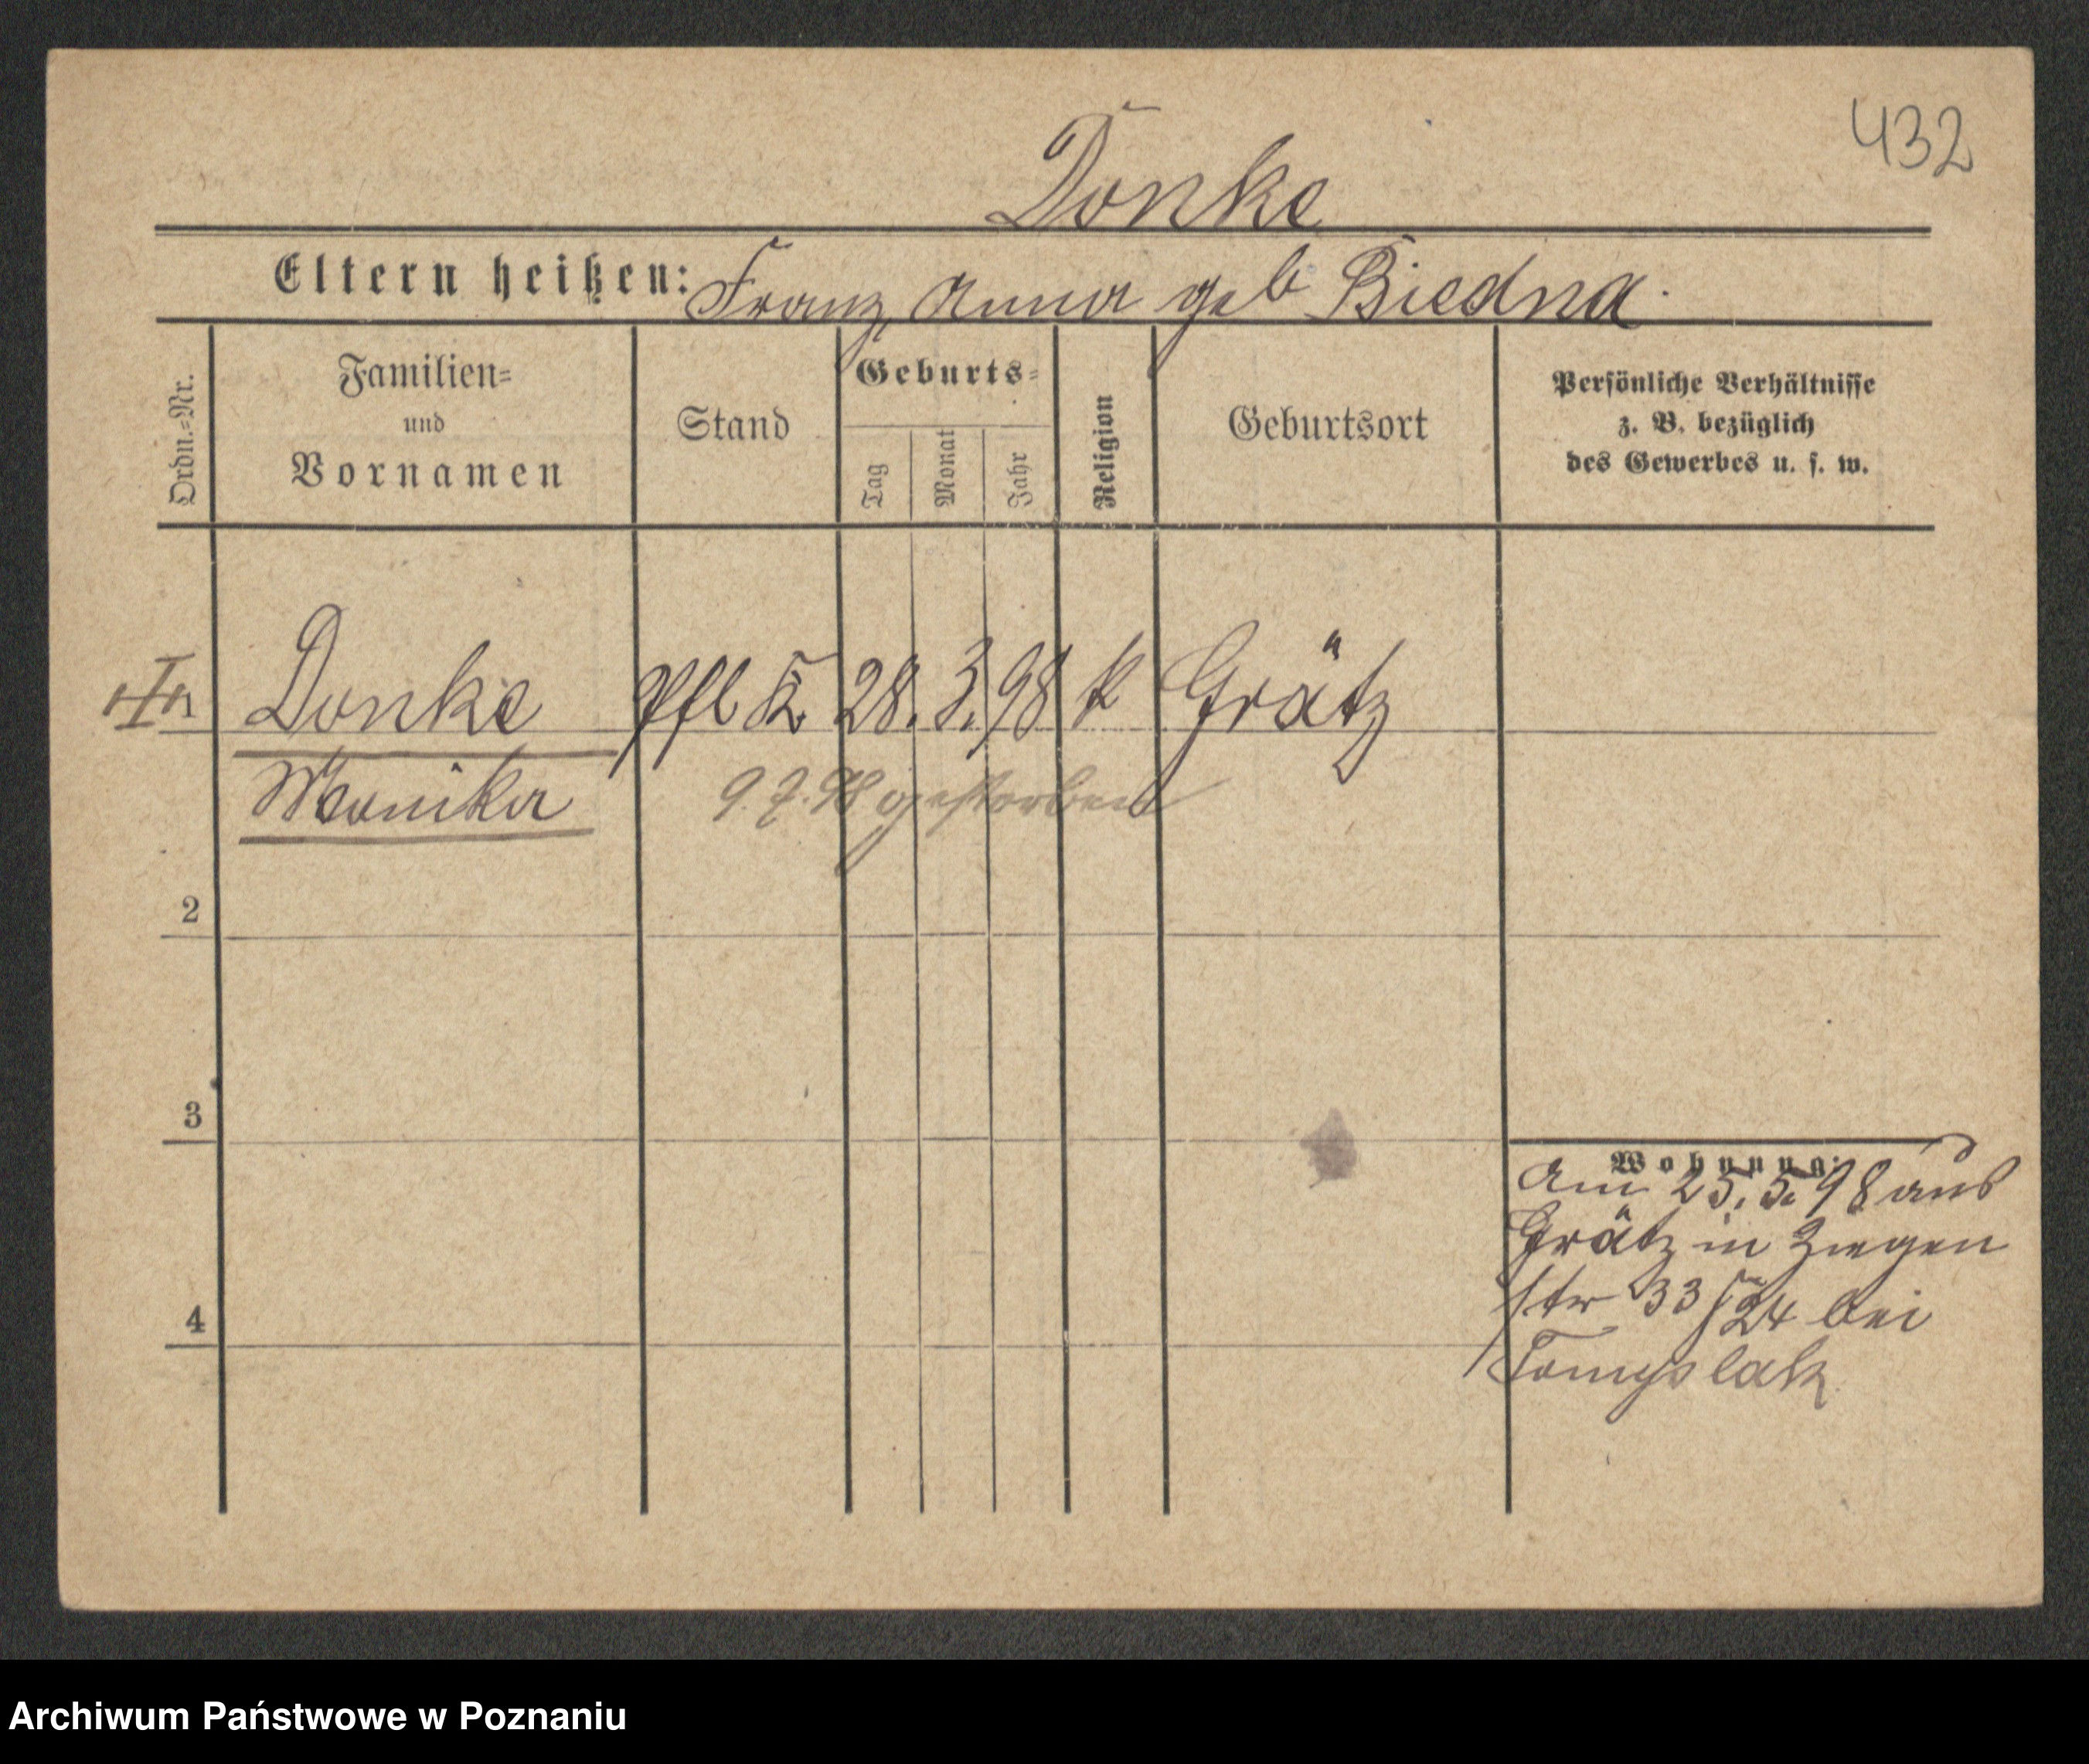 432
Donke
Eltern heißen: Franz Anna geb Biedna.
Ordn.-Nr.
Familien- und Vornamen
Stand
Geburts-
Tag
Monat
Jahr
Religion
Geburtsort
Persönliche Verhältnisse
z. B. bezüglich
des Gewerbes u. s. w.
Donke Pfl K 28. 3. 98 k Grätz
Monika 9.7.98 gestorben
2
3
4
Wohnung:
Am 25. 5. 98 aus
Grätz in Ziegen
str 23/24 bei
Tomyslak
Archiwum Państwowe w Poznaniu